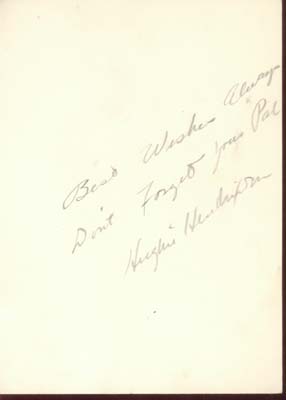 Best Wishes Always
Don't Forget your "Pal
Hughie Hendrixson